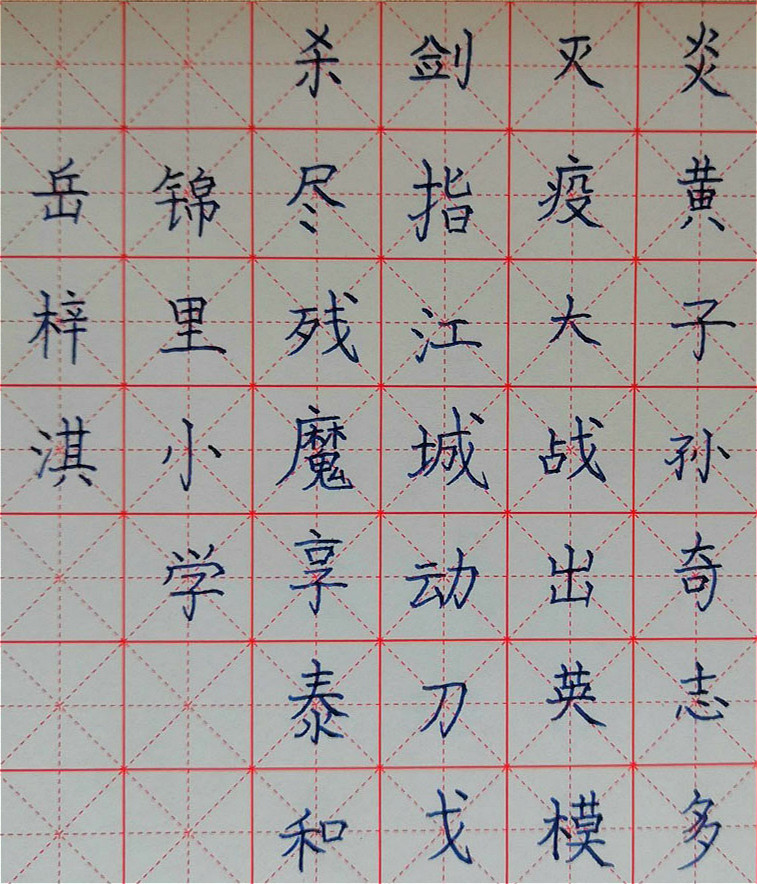 炎黄子孙奇志多
灭疫大战出英模
剑指江城动刀戈
杀尽残魔享泰和
锦里小学
岳梓淇